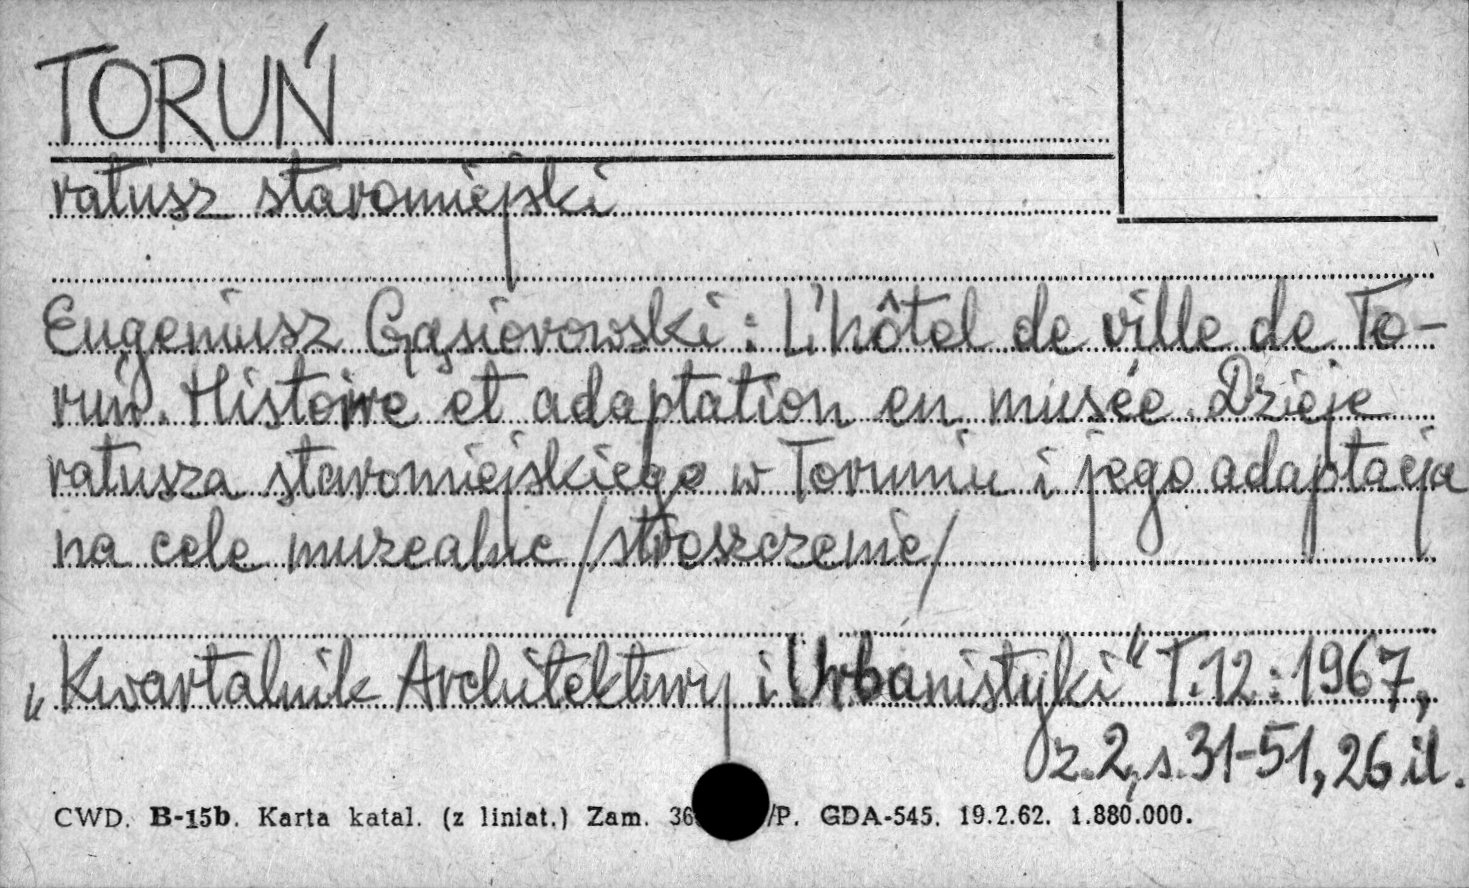 TORUŃ
ratusz staromiejski
Eugeniusz Gąsiorowski: L'hôtel de ville de To-
ruń. Histoire et adaptation en musée. Dzieje
ratusza staromiejskiego w Toruniu i jego adaptacja
na cele muzealne /streszczenie/
„Kwartalnik Architektury i Urbanistyki" T.12:1967,
z.2, s.31-51, 26 il.
CWD. B-15b. Karta katal. (z liniat.) Zam. 36 /P. GDA-545. 19.2.62. 1.880.000.